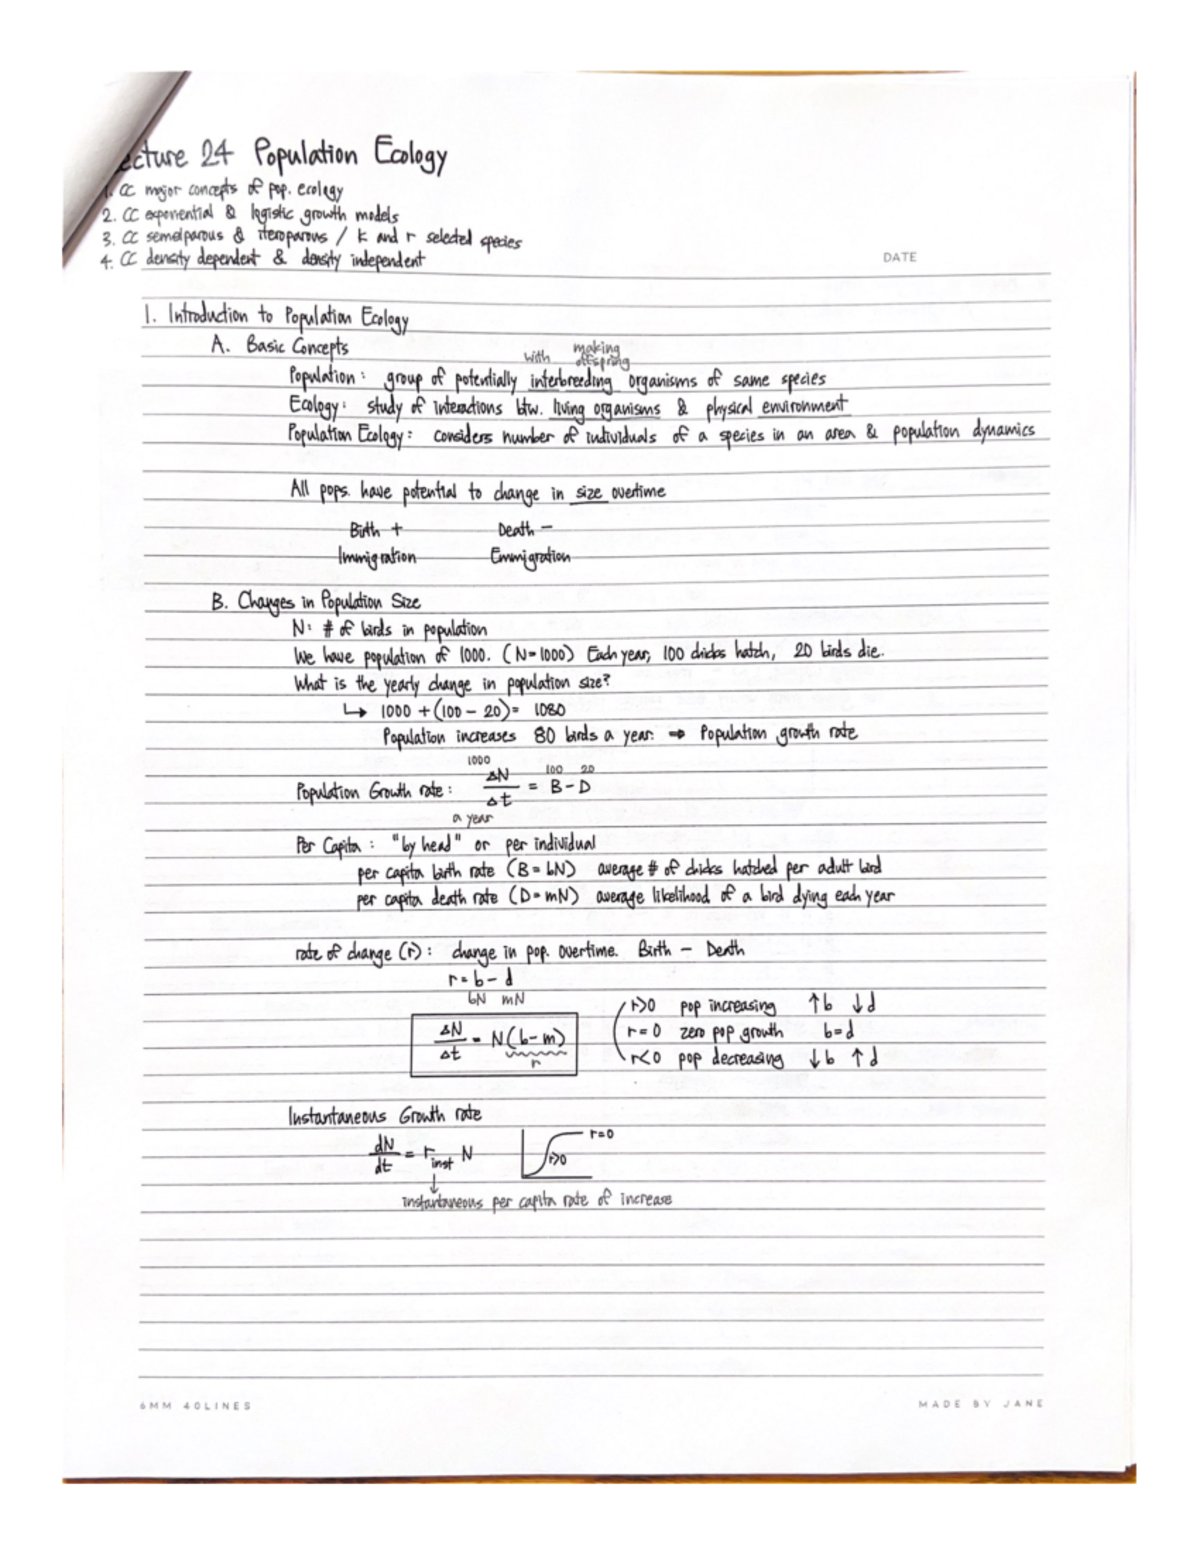 ecture 24 Population Ecology
1. CC major concepts of pop. ecology
2. CC exponential & logistic growth models
3. CC semelparous & iteroparous / k and r selected species
4. CC density dependent & density independent
DATE
1. Introduction to Population Ecology
A. Basic Concepts
with making offspring
Population: group of potentially interbreeding organisms of same species
Ecology: study of interactions btw. living organisms & physical environment
Population Ecology: considers number of individuals of a species in an area & population dynamics
All pops. have potential to change in size overtime
Birth + Death -
Immigration Emmigration
B. Changes in Population Size
N: # of birds in population
We have population of 1000. (N=1000) Each year, 100 chicks hatch, 20 birds die.
What is the yearly change in population size?
↳ 1000 + (100 - 20) = 1080
Population increases 80 birds a year. ⇒ Population growth rate
1000 100 20
Population Growth rate: ΔN/Δt = B - D
a year
Per Capita: "by head" or per individual
per capita birth rate (B = bN) average # of chicks hatched per adult bird
per capita death rate (D = mN) average likelihood of a bird dying each year
rate of change (r): change in pop. overtime. Birth - Death
r = b - d
bN mN
r>0 pop increasing ↑b ↓d
ΔN/Δt = N(b-m) r=0 zero pop growth b=d
r
r<0 pop decreasing ↓b ↑d
Instantaneous Growth rate
dN/dt = r inst N
r=0
r>0
↓
instantaneous per capita rate of increase
6MM 40LINES MADE BY JANE